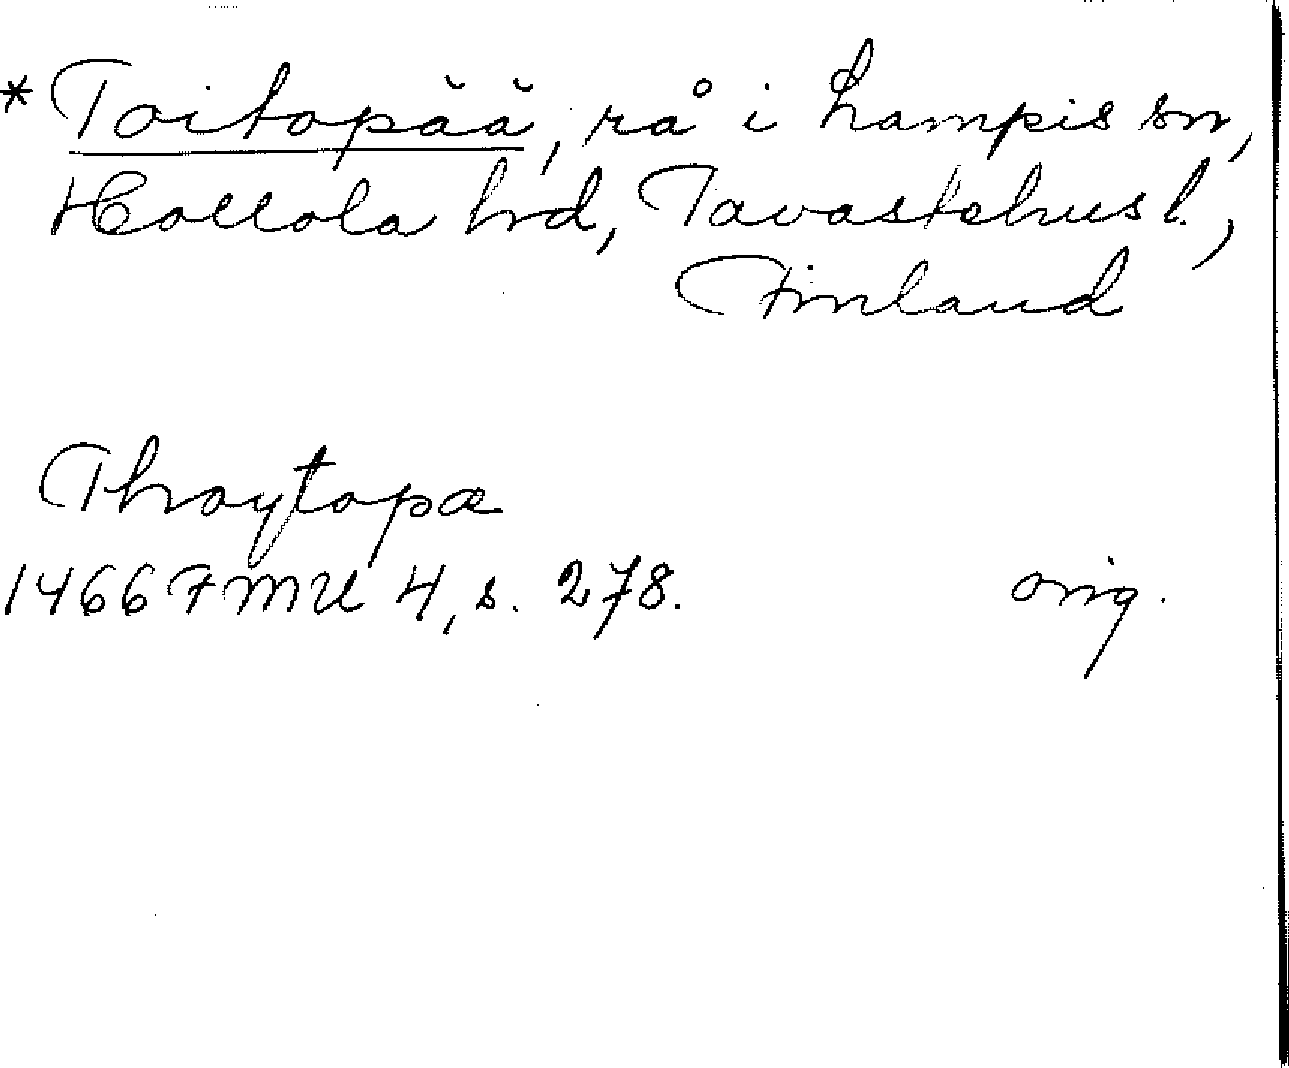 *Toitopää, rå i Lampis sn,
Hollola hrd, Tavastehus l.,
Finland
Thoytopæ
1466 FMU 4, s. 278. orig.